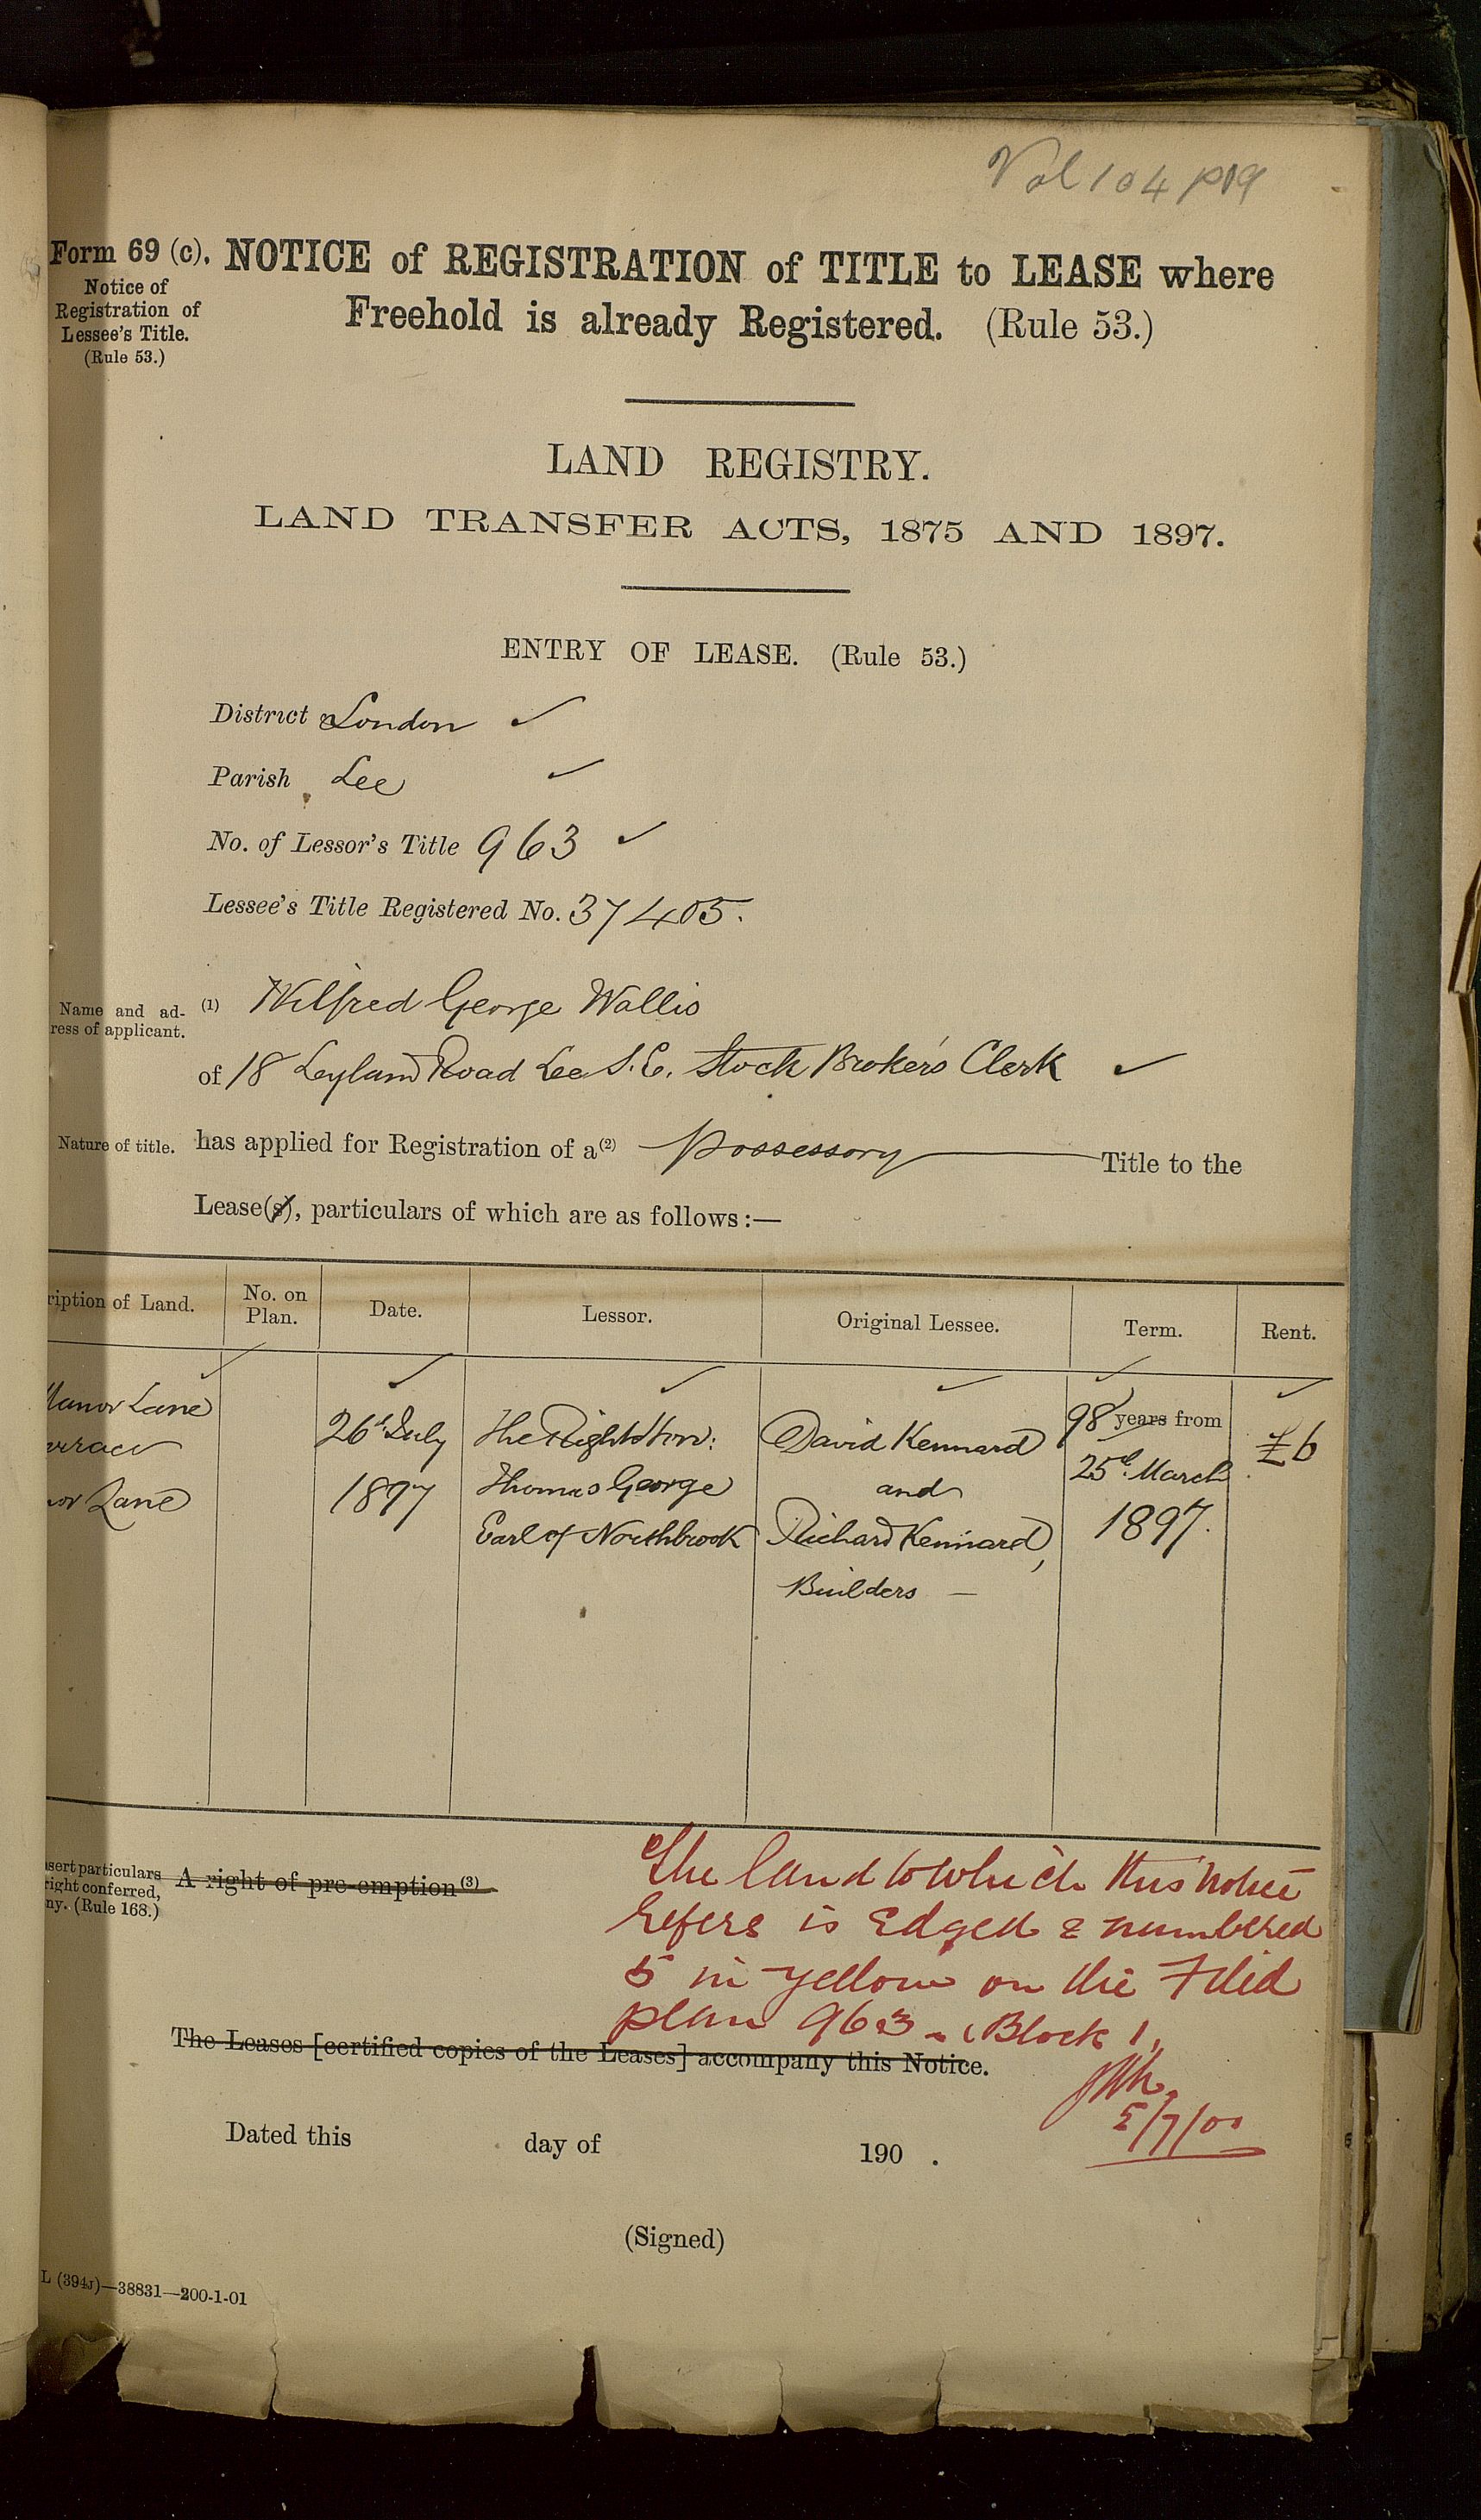 Vol 104 p19
Form 69 (c).
Notice of
Registration of
Lessee's Title.
(Rule 53.)
NOTICE of REGISTRATION of TITLE to LEASE where
Freehold is already Registered. (Rule 53.)
LAND REGISTRY.
LAND TRANSFER ACTS, 1875 AND 1897.
ENTRY OF LEASE. (Rule 53.)
District London ✓
Parish Lee ✓
No. of Lessor's Title 963 ✓
Lessee's Title Registered No. 37405.
Name and ad-
ress of applicant.
(1) Wilfred George Wallis
of 18 Leyland Road Lee S.E. Stock Broker's Clerk ✓
Nature of title. has applied for Registration of a (2) Possessory Title to the
Lease(s), particulars of which are as follows:—
ription of Land. No. on Plan. Date. Lessor. Original Lessee. Term. Rent.
Manor Lane 26th July The Right Hon: David Kennard 98 years from £6
errace 1897 Thomas George and 25th March
nor Lane Earl of Northbrook Richard Kennard, 1897.
Builders —
sert particulars
right conferred,
ny. (Rule 168.)
A right of pre-emption (3)
The land to which this notice
refers is Edged & numbered
5 in yellow on the Filed
plan 963 - (Block 1)
The Leases [certified copies of the Leases] accompany this Notice.
5/7/00
Dated this day of 190 .
(Signed)
L (394J)—38831—200-1-01